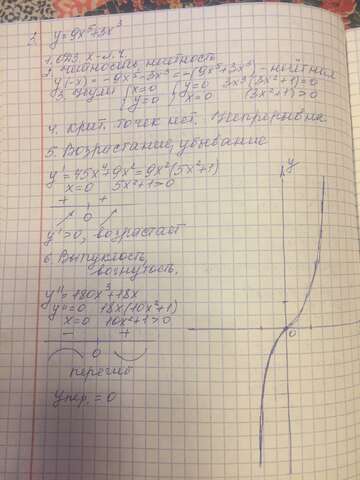 3. y=9x⁵+3x³
1. ОДЗ x-л.ч.
2. Чётность, нечётность
y(-x)= -9x⁵-3x³=-(9x⁵+3x³)-нечётная
3. Нули { x=0 { y=0 3x³(3x²+1)=0
y=0 x=0 (3x²+1)>0
4. Крит. точек нет. Непрерывна
5. Возрастание, убывание
y'=45x⁴+9x²=9x²(5x²+1)
x=0 5x²+1>0
+ +
0
y'>0, возрастает
6. Выпуклость,
вогнутость.
y''=180x³+18x
y''=0 18x(10x²+1)
x=0 10x²+1>0
- +
0
перегиб
y пер.=0
y
0